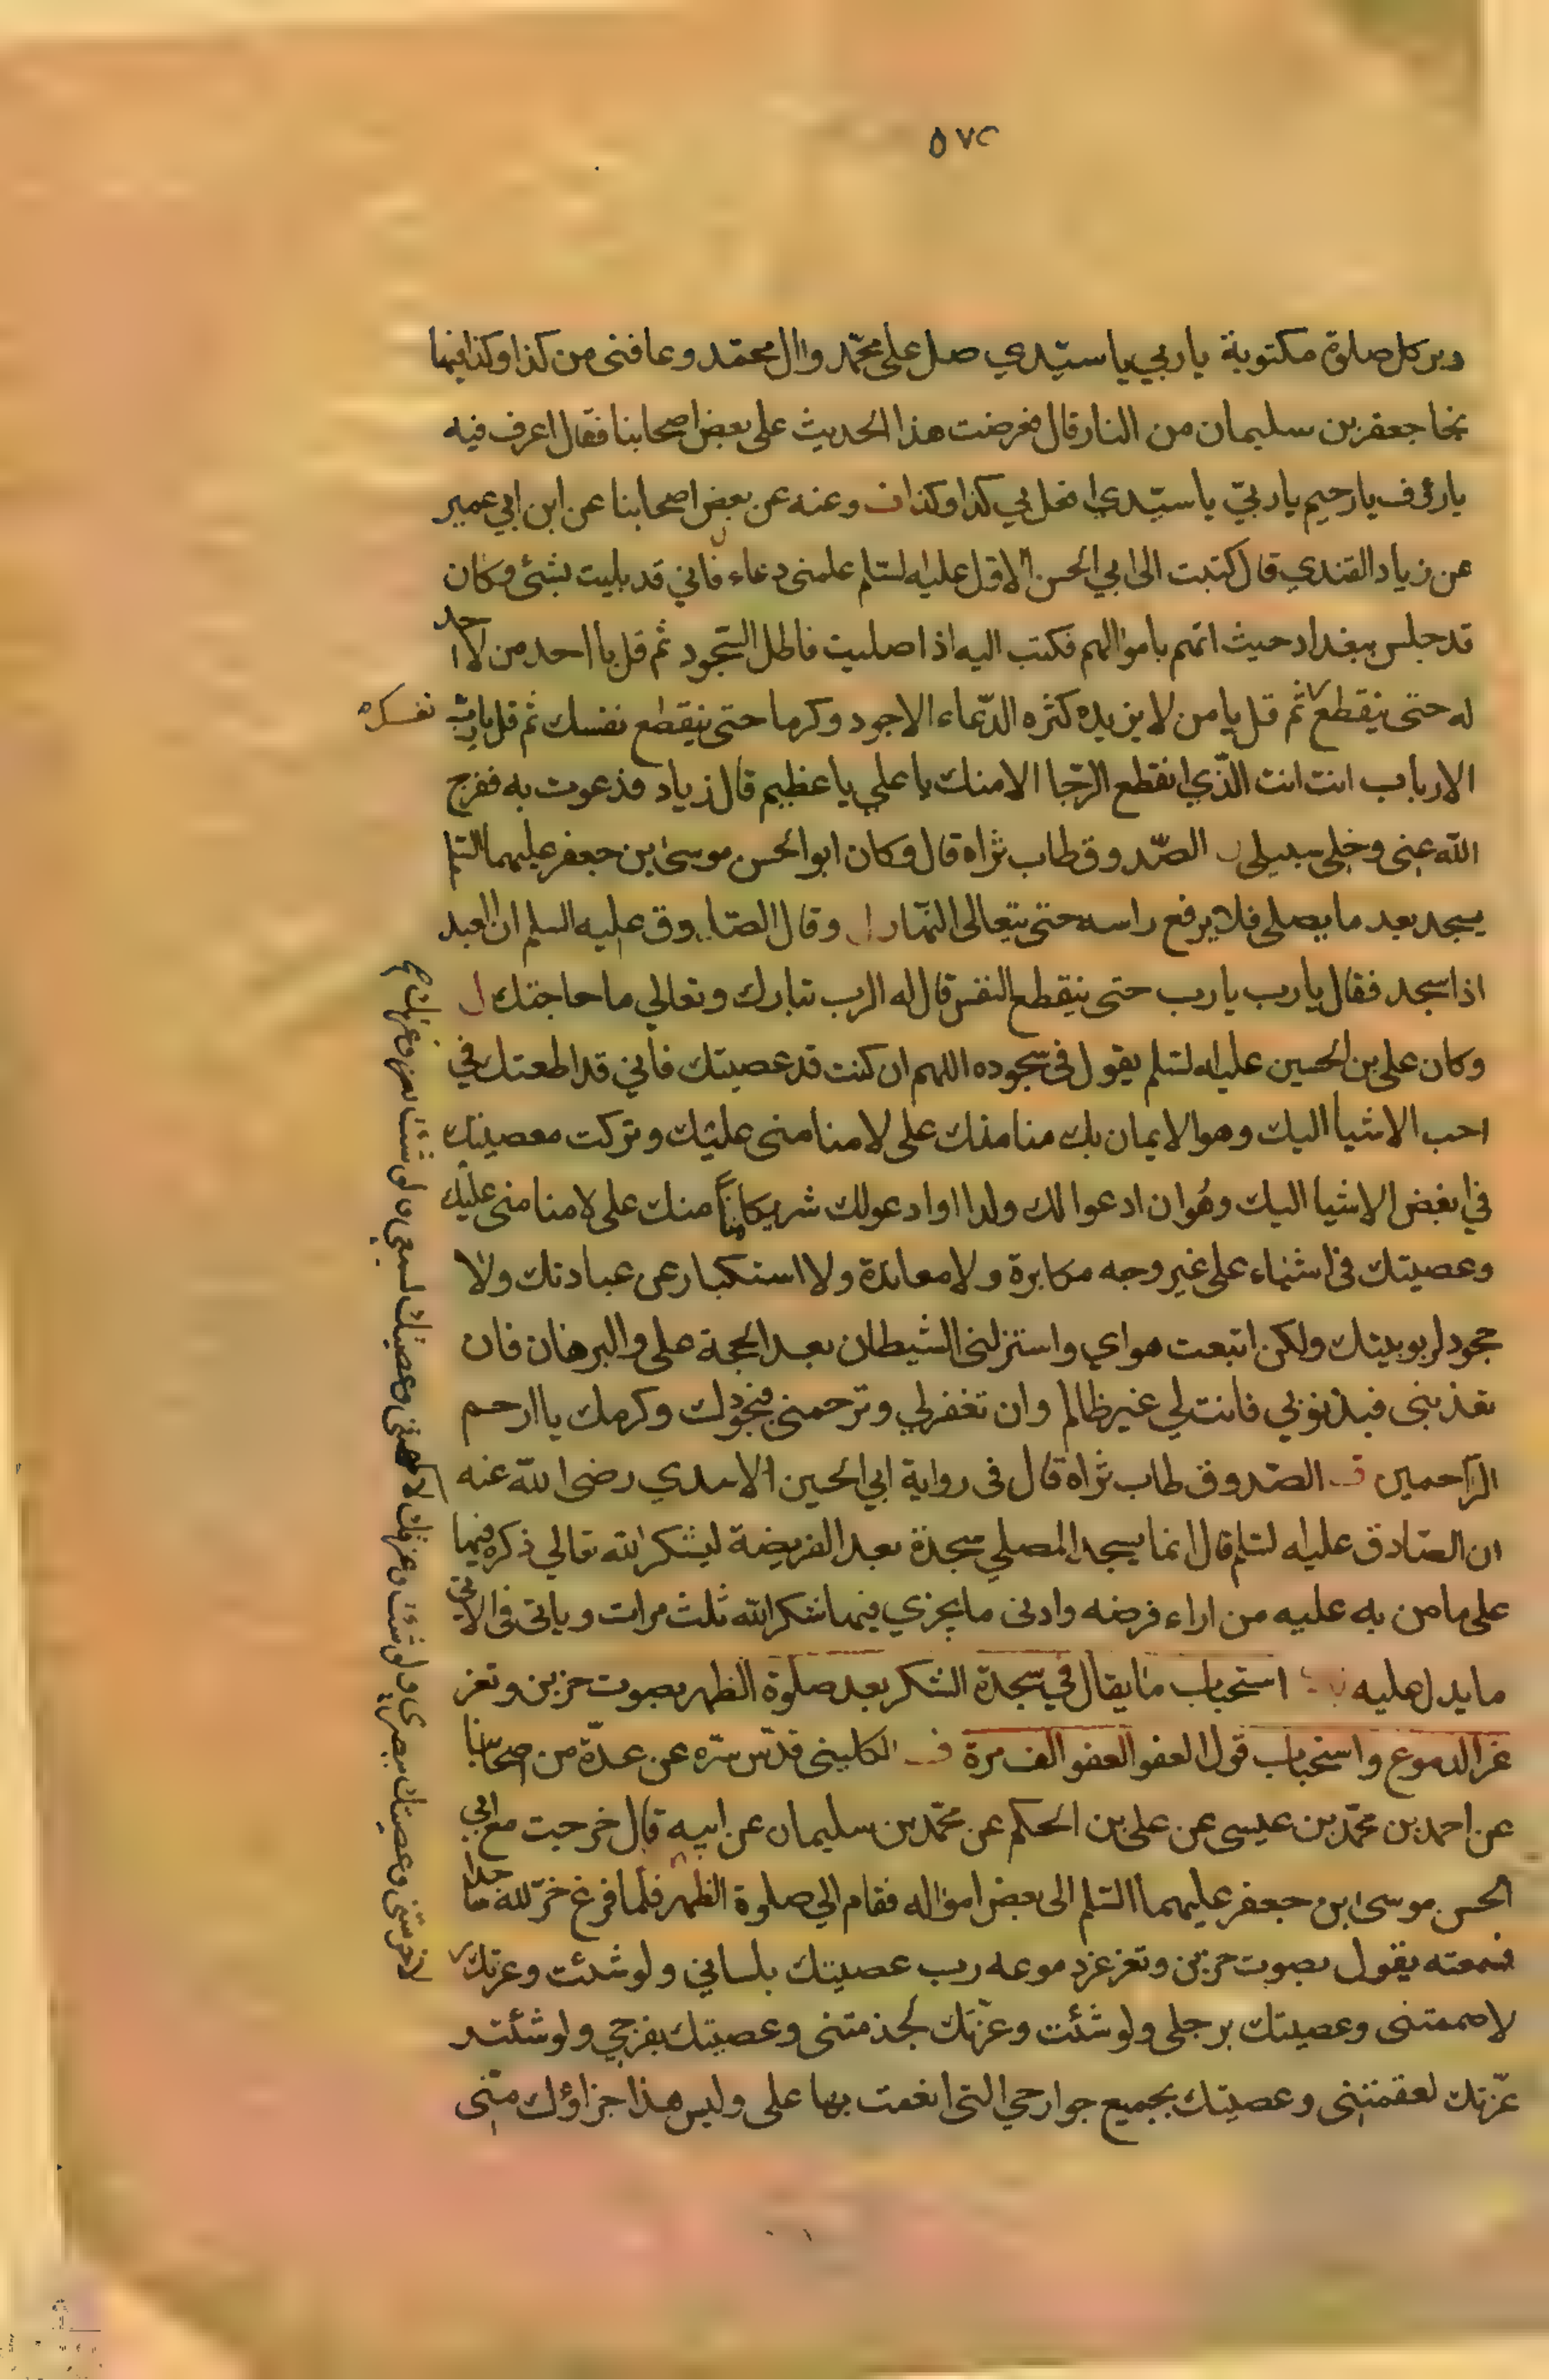 ٥٧٢
دبر كل صلوة مكتوبة يا ربي يا سيّدي صل على محمّد وال محمّد وعافنى من كذا وكذا فبها
نجا جعفر بن سليمان من النار قال فعرضت هذا الحديث على بعض اصحابنا فقال اعرف فيه
يا رؤف يا رحيم يا ربيّ يا سيّدي افعل بي كذا وكذا ف وعنه عن بعض اصحابنا عن ابن ابي عمير
عن زياد القندي قال كتبت الى ابي الحسن الاول عليه السلم علمنى دعاء فاني قد بليت بشئ وكان
قد حبس ببغداد حيث اتهم باموالهم فكتب اليه اذا صليت فاطل السّجود ثم قل يا احد من لا احد
له حتى ينقطع نفسك ثم قل يا من لا يزيده كثره الدّعاء الا جود وكرما حتى ينقطع نفسك ثم قل يا رب
الارباب انت انت الّذي انقطع الرّجا الا منك يا علي يا عظيم قال زياد فدعوت به ففرج
الله عنى وخلى سبيلى الصّدوق طاب ثراه قال وكان ابو الحسن موسى بن جعفر عليهما السّلم
يسجد بعد ما يصلى فلا يرفع راسه حتى يتعالى النّهار وقال الصّادق عليه السلم ان العبد
اذا سجد فقال يا رب يا رب حتى ينقطع النفس قال له الرب تبارك وتعالي ما حاجتك
وكان على بن الحسين عليه السلم يقول فى سجوده اللهم ان كنت قد عصيتك فاني قد اطعتك في
احب الاشيا اليك وهو الايمان بك منا منك على لا منا منى عليك وتركت معصيتك
في ابغض الاشيا اليك وهُو ان ادعوا لك ولدا او ادعو لك شريكا منّاً منك على لا منا منى عليك
وعصيتك فى اشياء على غير وجه مكابرة ولا معاندة ولا استكبار عن عبادتك ولا
جحود لربوبيتك ولكن اتبعت هواي واستزلنى الشيطان بعد الحجة على والبرهان فان
تعذبنى فبذنوبي فانت لي غير ظالم وان تغفر لي وترحمنى فبجودك وكرمك يا ارحم
الرّاحمين الصّدوق طاب ثراه قال فى رواية ابي الحسين الاسدي رضى الله عنه
ان الصّادق عليه السلم قال انما يسجد المصلي سجدة بعد الفريضة ليشكر الله تعالي ذكره فيها
على ما من به عليه من اداء فرضه وادنى ما يجزي فيها شكر الله ثلث مرات وياتى فى الاتى
ما يدل عليه باب استحباب ما يقال في سجدة الشكر بعد صلوة الظهر بصوت حزين وتغر
غر الدموع واستحباب قول العفو العفو الف مرة الكلينى قدّس سّره عن عدّة من اصحابنا
عن احمد بن محمّد بن عيسى عن على بن الحكم عن محمّد بن سليمان عن ابيه قال خرجت مع ابي
الحسن موسى بن جعفر عليهما السّلم الى بعض امواله فقام الي صلوة الظهر فلما فرغ خرّ لله ساجدا
فسمعته يقول بصوت حزين وتغرغر دموعه رب عصيتك بلسانى ولو شئت وعزتك
لاخرستنى وعصيتك ببصرى ولو شئت وعزتك لاكمهتنى وعصيتك بسمعى ولو شئت وعزتك
لاصممتنى وعصيتك برجلى ولو شئت وعزّتك لجذمتنى وعصيتك بفرجي ولو شئت و
عزّتك لعقمتنى وعصيتك بجميع جوارحي التى انعمت بها على وليس هذا جزاؤك منّى